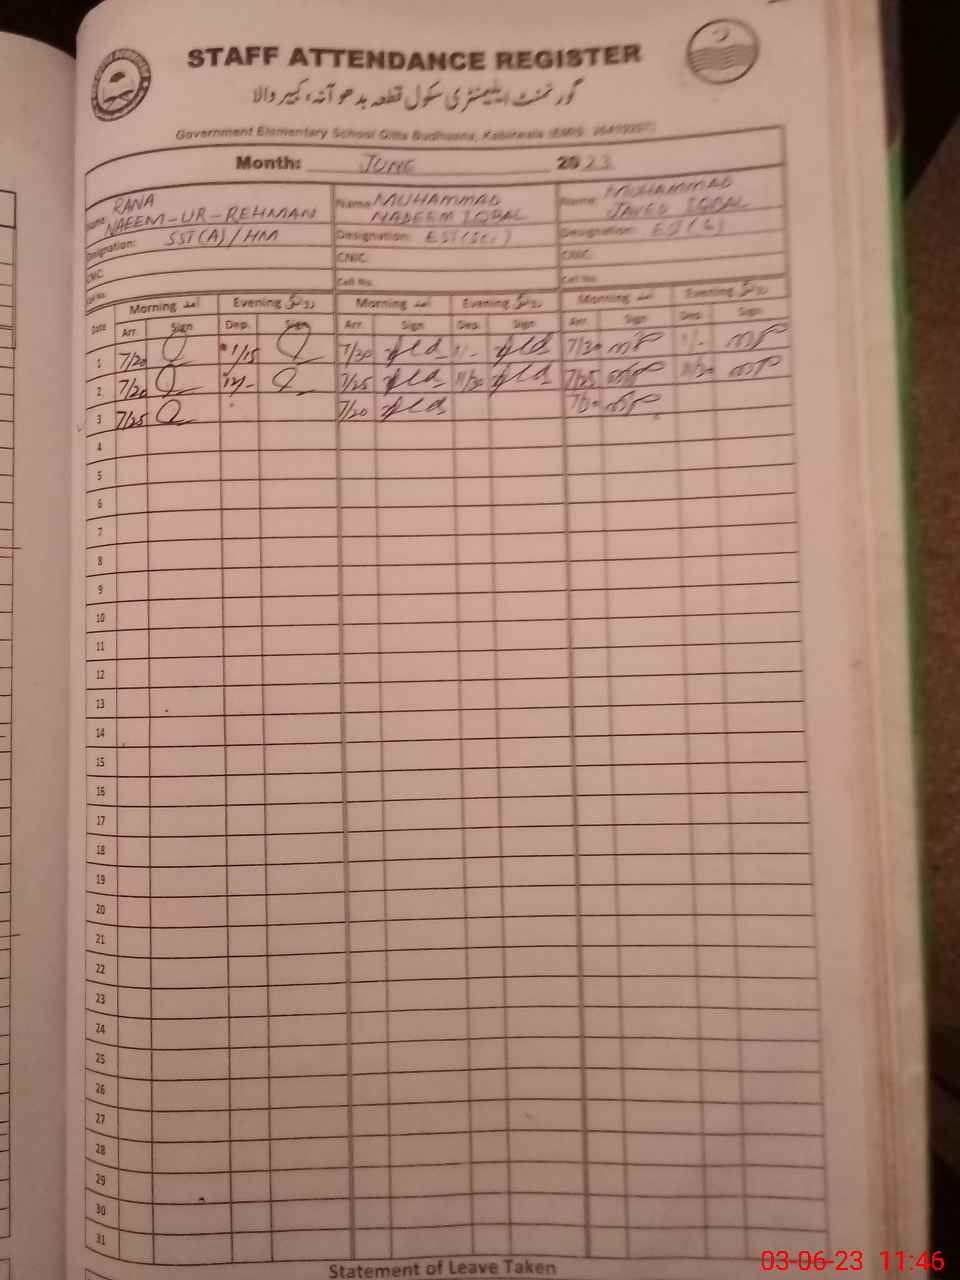 STAFF ATTENDANCE REGISTER
گورنمنٹ ایلیمنٹری سکول قطعہ بدھوآنہ، کبیر والا
Government Elementary School Qitta Budhuana, Kabirwala (EMIS:
Month: JUNE 2023
Name: RANA NAEEM-UR-REHMAN Name: MUHAMMAD NADEEM IQBAL Name: MUHAMMAD JAVED IQBAL
Designation: SST(A)/HM Designation: EST(Sci) Designation:
CNIC: CNIC: CNIC:
Cell No. Cell No. Cell No.
Date Morning آمد Evening روانگی Morning آمد Evening روانگی Morning آمد Evening روانگی
Arr. Sign Dep. Sign Arr. Sign Dep. Sign Arr. Sign Dep. Sign
1 7/20 1/15 7/30 1/- 7/30 1/-
2 7/20 12/- 7/25 11/30 7/25 11/30
3 7/25 7/20
4
5
6
7
8
9
10
11
12
13
14
15
16
17
18
19
20
21
22
23
24
25
26
27
28
29
30
31
Statement of Leave Taken
03-06-23 11:46